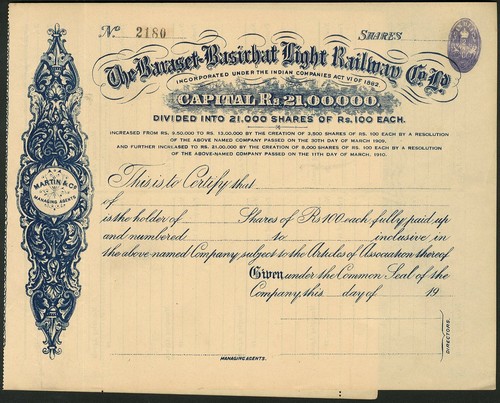 No. 2180 SHARES
The Baraset-Basirhat Light Railway Co. Ld.
INCORPORATED UNDER THE INDIAN COMPANIES ACT VI OF 1882.
CAPITAL Rs 21,00,000.
DIVIDED INTO 21.000 SHARES OF Rs. 100 EACH.
INCREASED FROM RS. 9,50,000 TO RS. 13,00,000 BY THE CREATION OF 3,500 SHARES OF RS. 100 EACH BY A RESOLUTION
OF THE ABOVE NAMED COMPANY PASSED ON THE 30TH DAY OF MARCH 1909,
AND FURTHER INCREASED TO RS. 21,00,000 BY THE CREATION OF 8,000 SHARES OF RS. 100 EACH BY A RESOLUTION
OF THE ABOVE-NAMED COMPANY PASSED ON THE 11TH DAY OF MARCH, 1910.
This is to Certify that
of
is the holder of Shares of Rs 100 each fully paid up
and numbered to inclusive in
the above-named Company, subject to the Articles of Association thereof
Given under the Common Seal of the
Company, this day of 19
MARTIN & Co
MANAGING AGENTS
DIRECTORS.
MANAGING AGENTS.